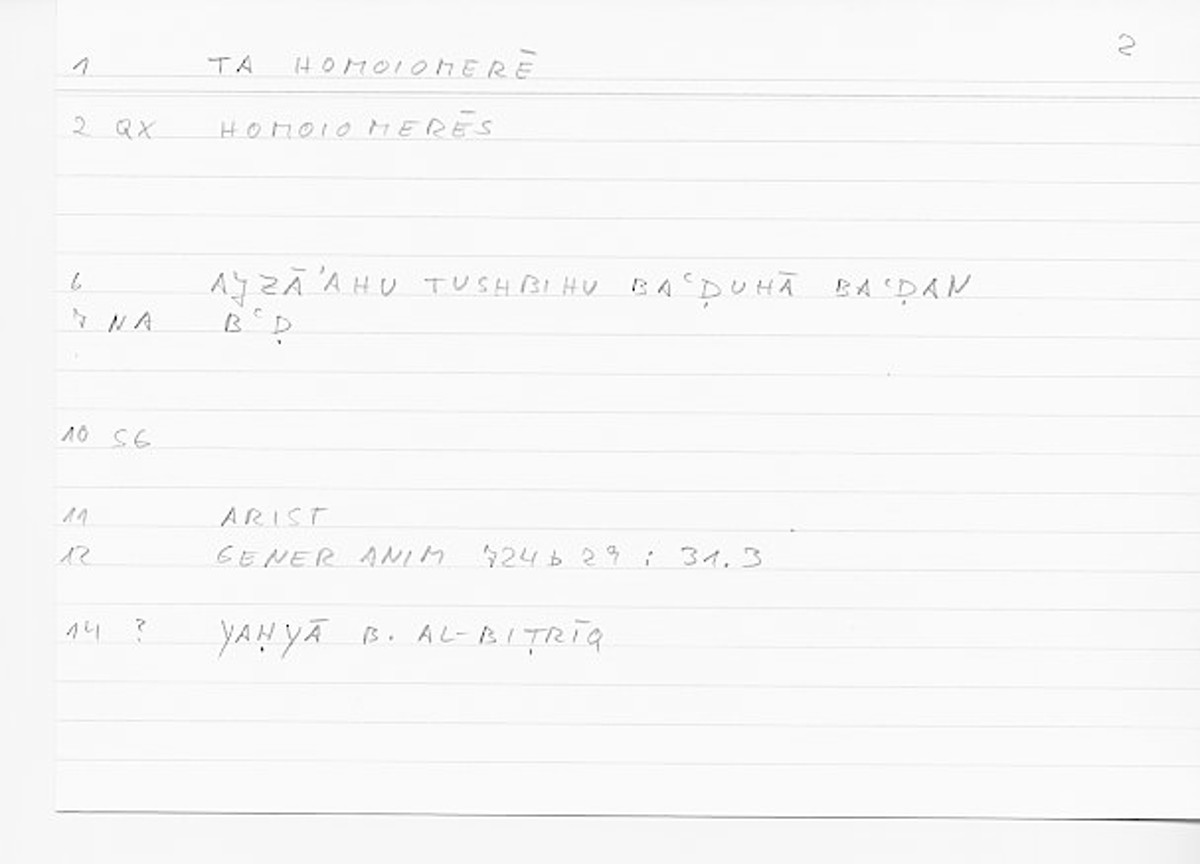 2
1 TA HOMOIOMERĒ
2 QX HOMOIOMERĒS
6 AJZĀʾAHU TUSHBIHU BAʿḌUHĀ BAʿḌAN
7 NA BʿḌ
10 SG
11 ARIST
12 GENER ANIM 724b29 ; 31.3
14 ? YAḤYĀ B. AL-BIṬRĪQ